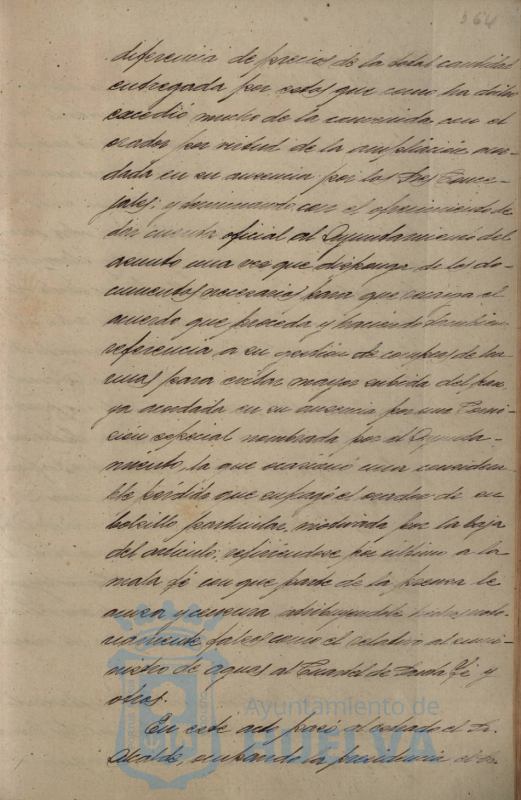 564
diferencia de precios de la total cantidad
entregada por estos que como ha dicho
excedió mucho de la convenida con el
orador por virtud de la ampliación acor-
dada en su ausencia por los Sres Conce-
jales; y terminando con el ofrecimiento de
dar cuenta oficial al Ayuntamiento del
asunto una vez que disponga de los do-
cumentos necesarios para que recaiga el
acuerdo que proceda y haciendo tambien
referencia a su gestion de compras de ha-
rinas para evitar mayor subida del pan
ya acordada en su ausencia por una Comi-
sion especial nombrada por el Ayunta-
miento, la que ocasionó una considera-
ble pérdida que enjugó el orador de su
bolsillo particular, motivada por la baja
del articulo; refiriéndose por último a la
mala fé con que parte de la prensa le
acusa y censura atribuyendole hechos noto-
riamente falsos como el relativo al sumi-
nistro de aguas al Cuartel de Santa Fé y
otros.
En este acto pasó al estrado el Sr.
Alcalde ocupando la presidencia el Sr.
Ayuntamiento de
HUELVA